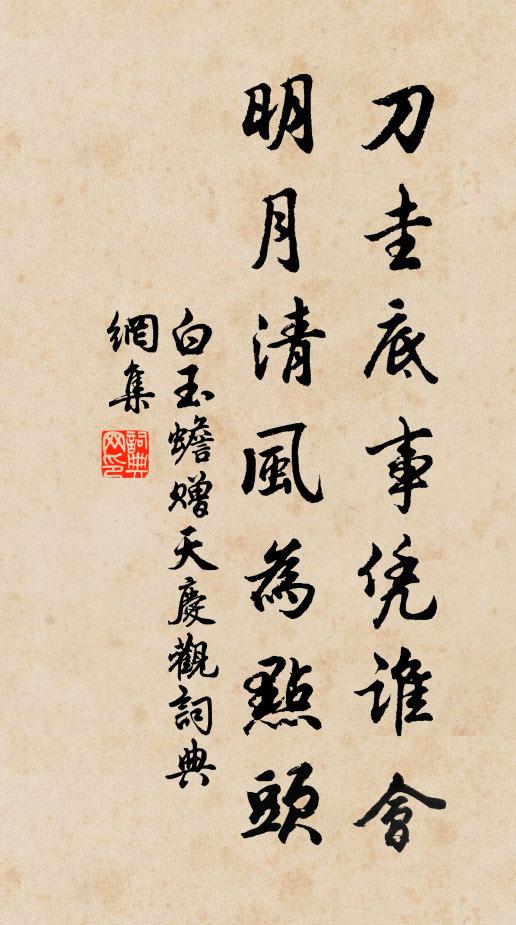 刀圭底事凭誰會
明月清風為點頭
白玉蟾贈天慶觀詞典
網集
詞典網印